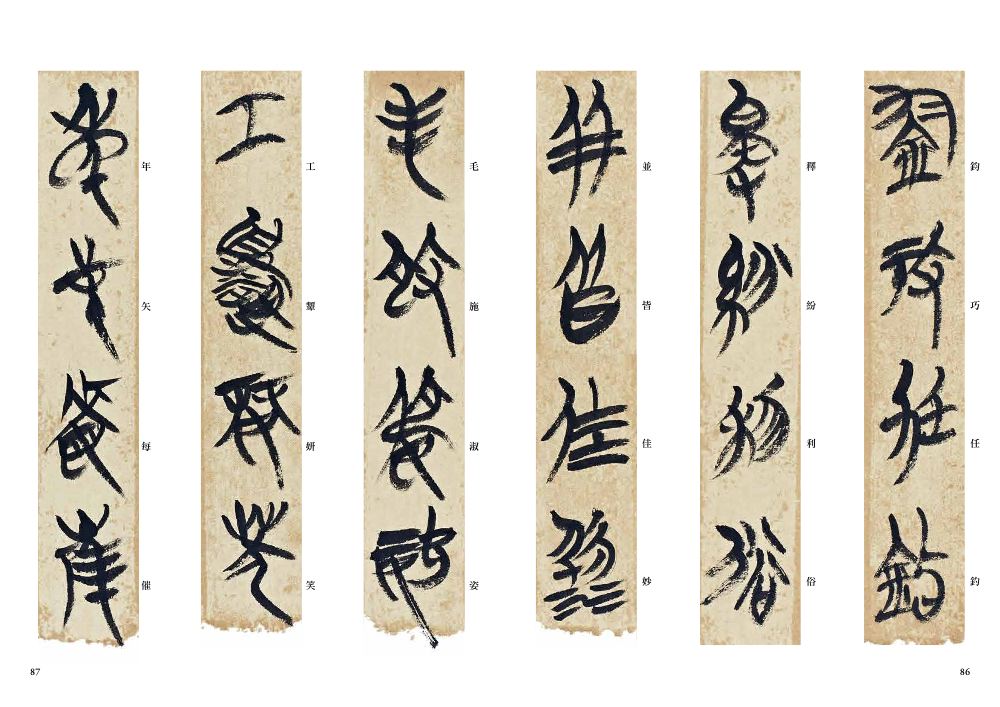 鈞 巧 任 釣
釋 紛 利 俗
並 皆 佳 妙
毛 施 淑 姿
工 顰 妍 笑
年 矢 每 催
86
87